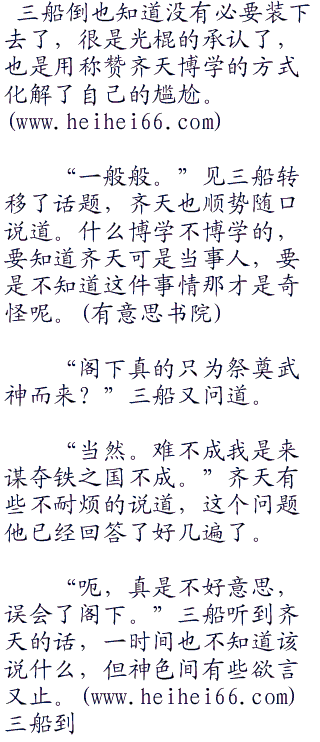 三船倒也知道没有必要装下
去了，很是光棍的承认了，
也是用称赞齐天博学的方式
化解了自己的尴尬。
(www.heihei66.com)
“一般般。”见三船转
移了话题，齐天也顺势随口
说道。什么博学不博学的，
要知道齐天可是当事人，要
是不知道这件事情那才是奇
怪呢。(有意思书院)
“阁下真的只为祭奠武
神而来？”三船又问道。
“当然。难不成我是来
谋夺铁之国不成。”齐天有
些不耐烦的说道，这个问题
他已经回答了好几遍了。
“呃，真是不好意思，
误会了阁下。”三船听到齐
天的话，一时间也不知道该
说什么，但神色间有些欲言
又止。(www.heihei66.com)
三船到